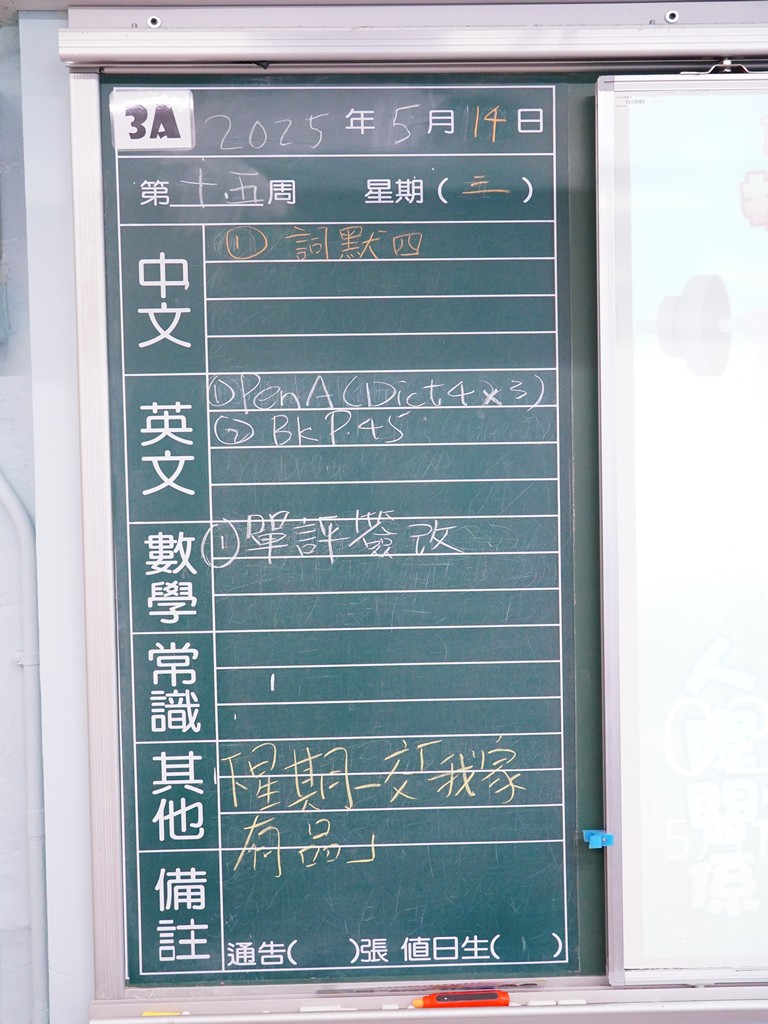 3A 2025年5月14日
第十五周 星期(三)
中文
① 詞默四
英文
① Pen A (Dict. 4 x 3)
② Bk P.45
數學
① 單評簽改
常識
其他
下星期一交「我家
有品」
備註
通告( )張 值日生( )
人際關係